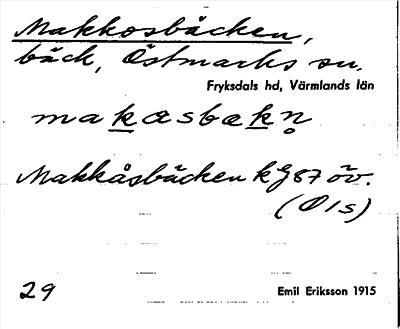 Makkosbäcken,
bäck, Östmarks sn.
Fryksdals hd, Värmlands län
makasbækn̥
Makkåsbäcken kG87 öv.
(Ö1s)
29
Emil Eriksson 1915